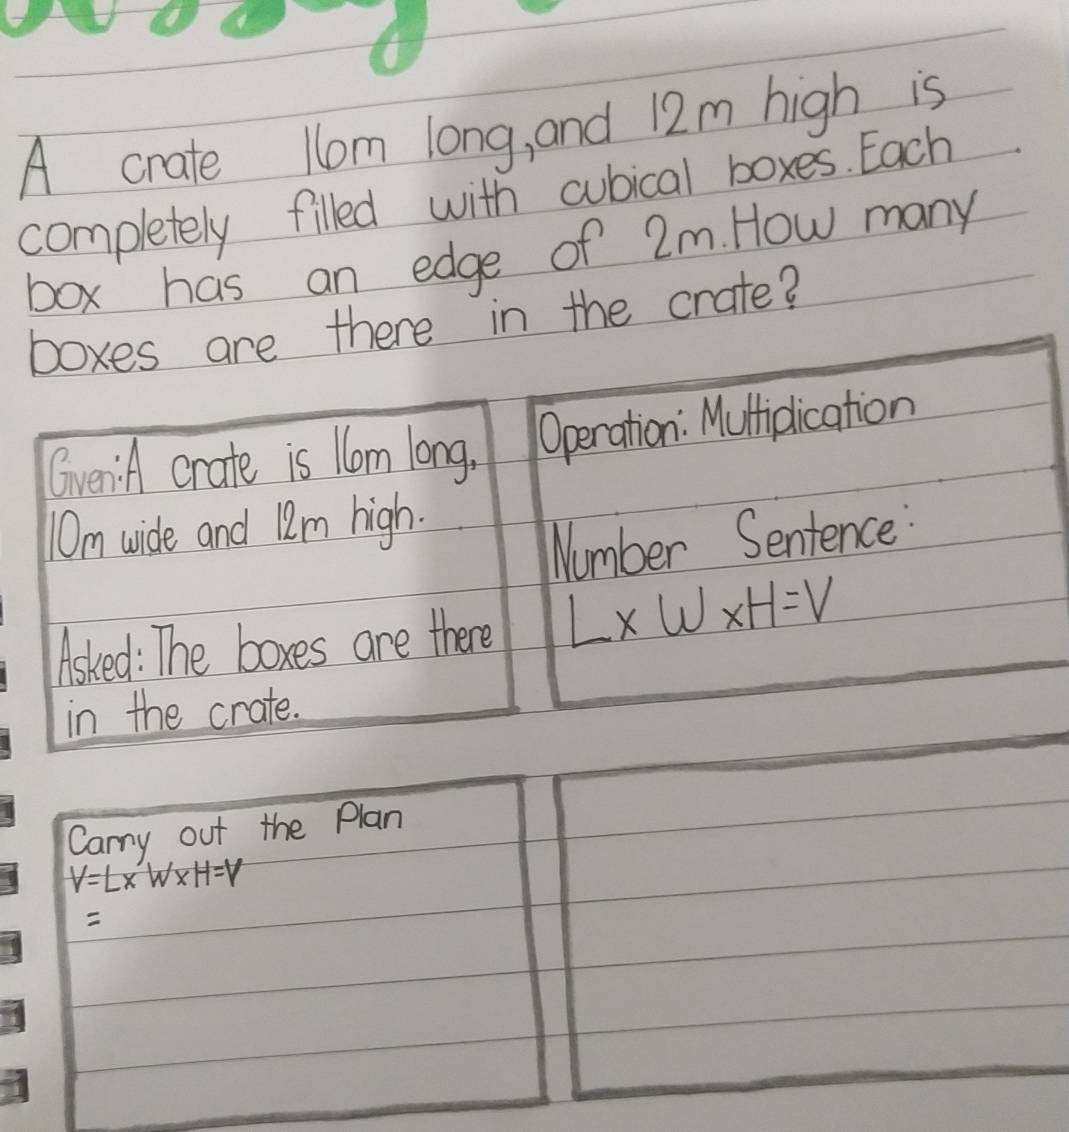 A crate 16m long, and 12m high is
completely filled with cubical boxes. Each
box has an edge of 2m. How many
boxes are there in the crate?
Given: A crate is 16m long,
10m wide and 12m high.
Asked: The boxes are there
in the crate.
Operation: Multiplication
Number Sentence:
L x W x H = V
Carry out the Plan
V = L x W x H = V
=